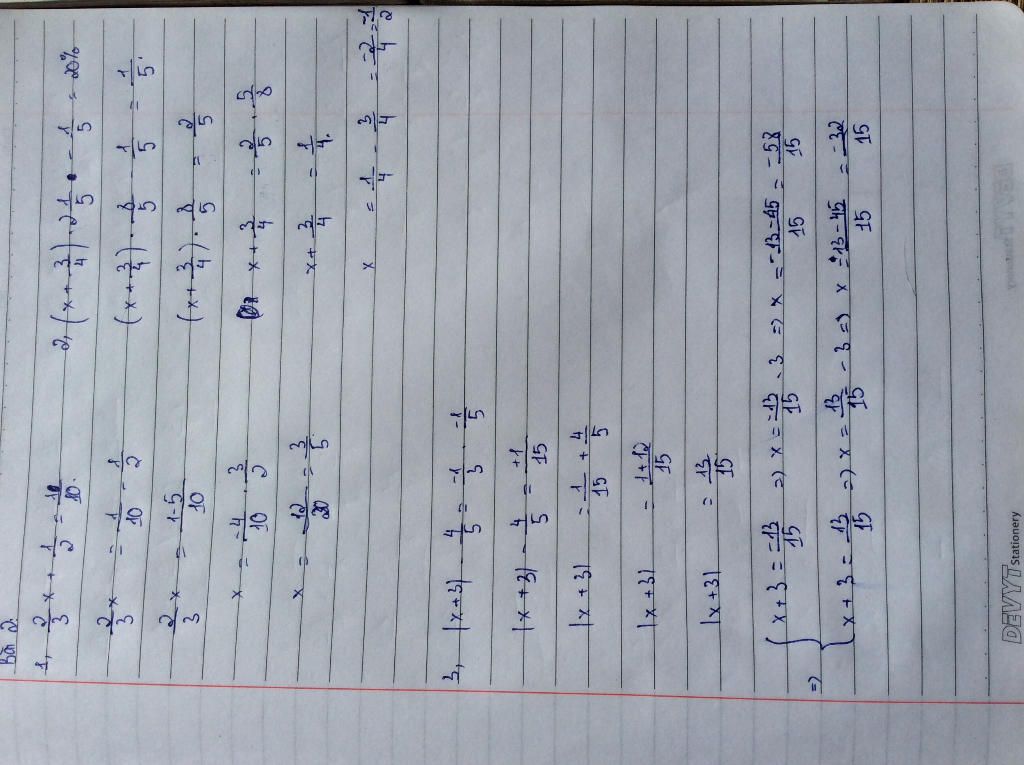 Bài 2
1, 2/3 x + 1/2 = 1/10.
2/3 x = 1/10 - 1/2
2/3 x = (1-5)/10
x = -4/10 . 3/2
x = -12/20 = -3/5.
2, (x + 3/4) . 2 1/5 - 1/5 = 20%
(x + 3/4) . 8/5 - 1/5 = 1/5.
(x + 3/4) . 8/5 = 2/5
x + 3/4 = 2/5 . 5/8
x + 3/4 = 1/4.
x = 1/4 - 3/4 = -2/4 = -1/2
3, |x+3| - 4/5 = -1/3 . -1/5
|x+3| - 4/5 = +1/15
|x+3| = 1/15 + 4/5
|x+3| = (1+12)/15
|x+3| = 13/15
=> { x+3 = -13/15 => x = -13/15 - 3 => x = (-13-45)/15 = -58/15
x+3 = 13/15 => x = 13/15 - 3 => x = (13-45)/15 = -32/15
DEVYT Stationery